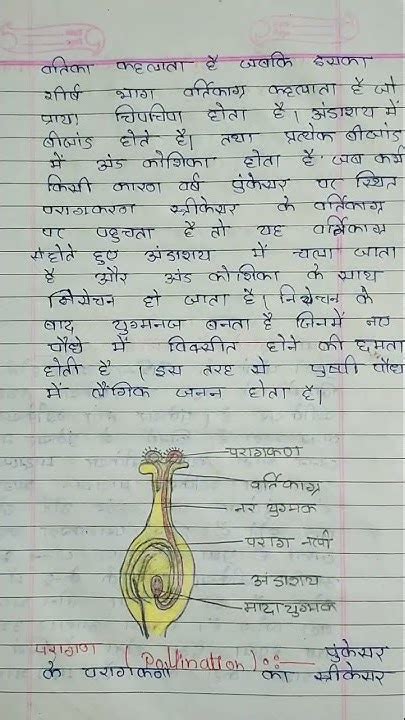 वर्तिका कहलाता है जबकि इसका
शीर्ष भाग वर्तिकाग्र कहलाता है जो
प्राय: चिपचिपा होता है। अंडाशय में
बीजांड होते है। तथा प्रत्येक बीजांड
में अंड कोशिका होता है जब कभी
किसी कारण वर्ष पुंकेसर पर स्थित
परागकण स्त्रीकेसर के वर्तिकाग्र
पर पहुचता है तो यह वर्तिकाग्र
से होते हुए अंडाशय में चला जाता
है और अंड कोशिका के साथ
निसेचन हो जाता है। निसेचन के
बाद युग्मनज बनता है जिनमें नए
पौधे में विक्सीत होने की क्षमता
होती है। इस तरह से पुष्पी पौधे
में लैंगिक जनन होता है।
परागकण
वर्तिकाग्र
नर युग्मक
पराग नली
अंडाशय
मादा युग्मक
परागण (Pollination) :— पुंकेसर
के परागकणों का स्त्रीकेसर